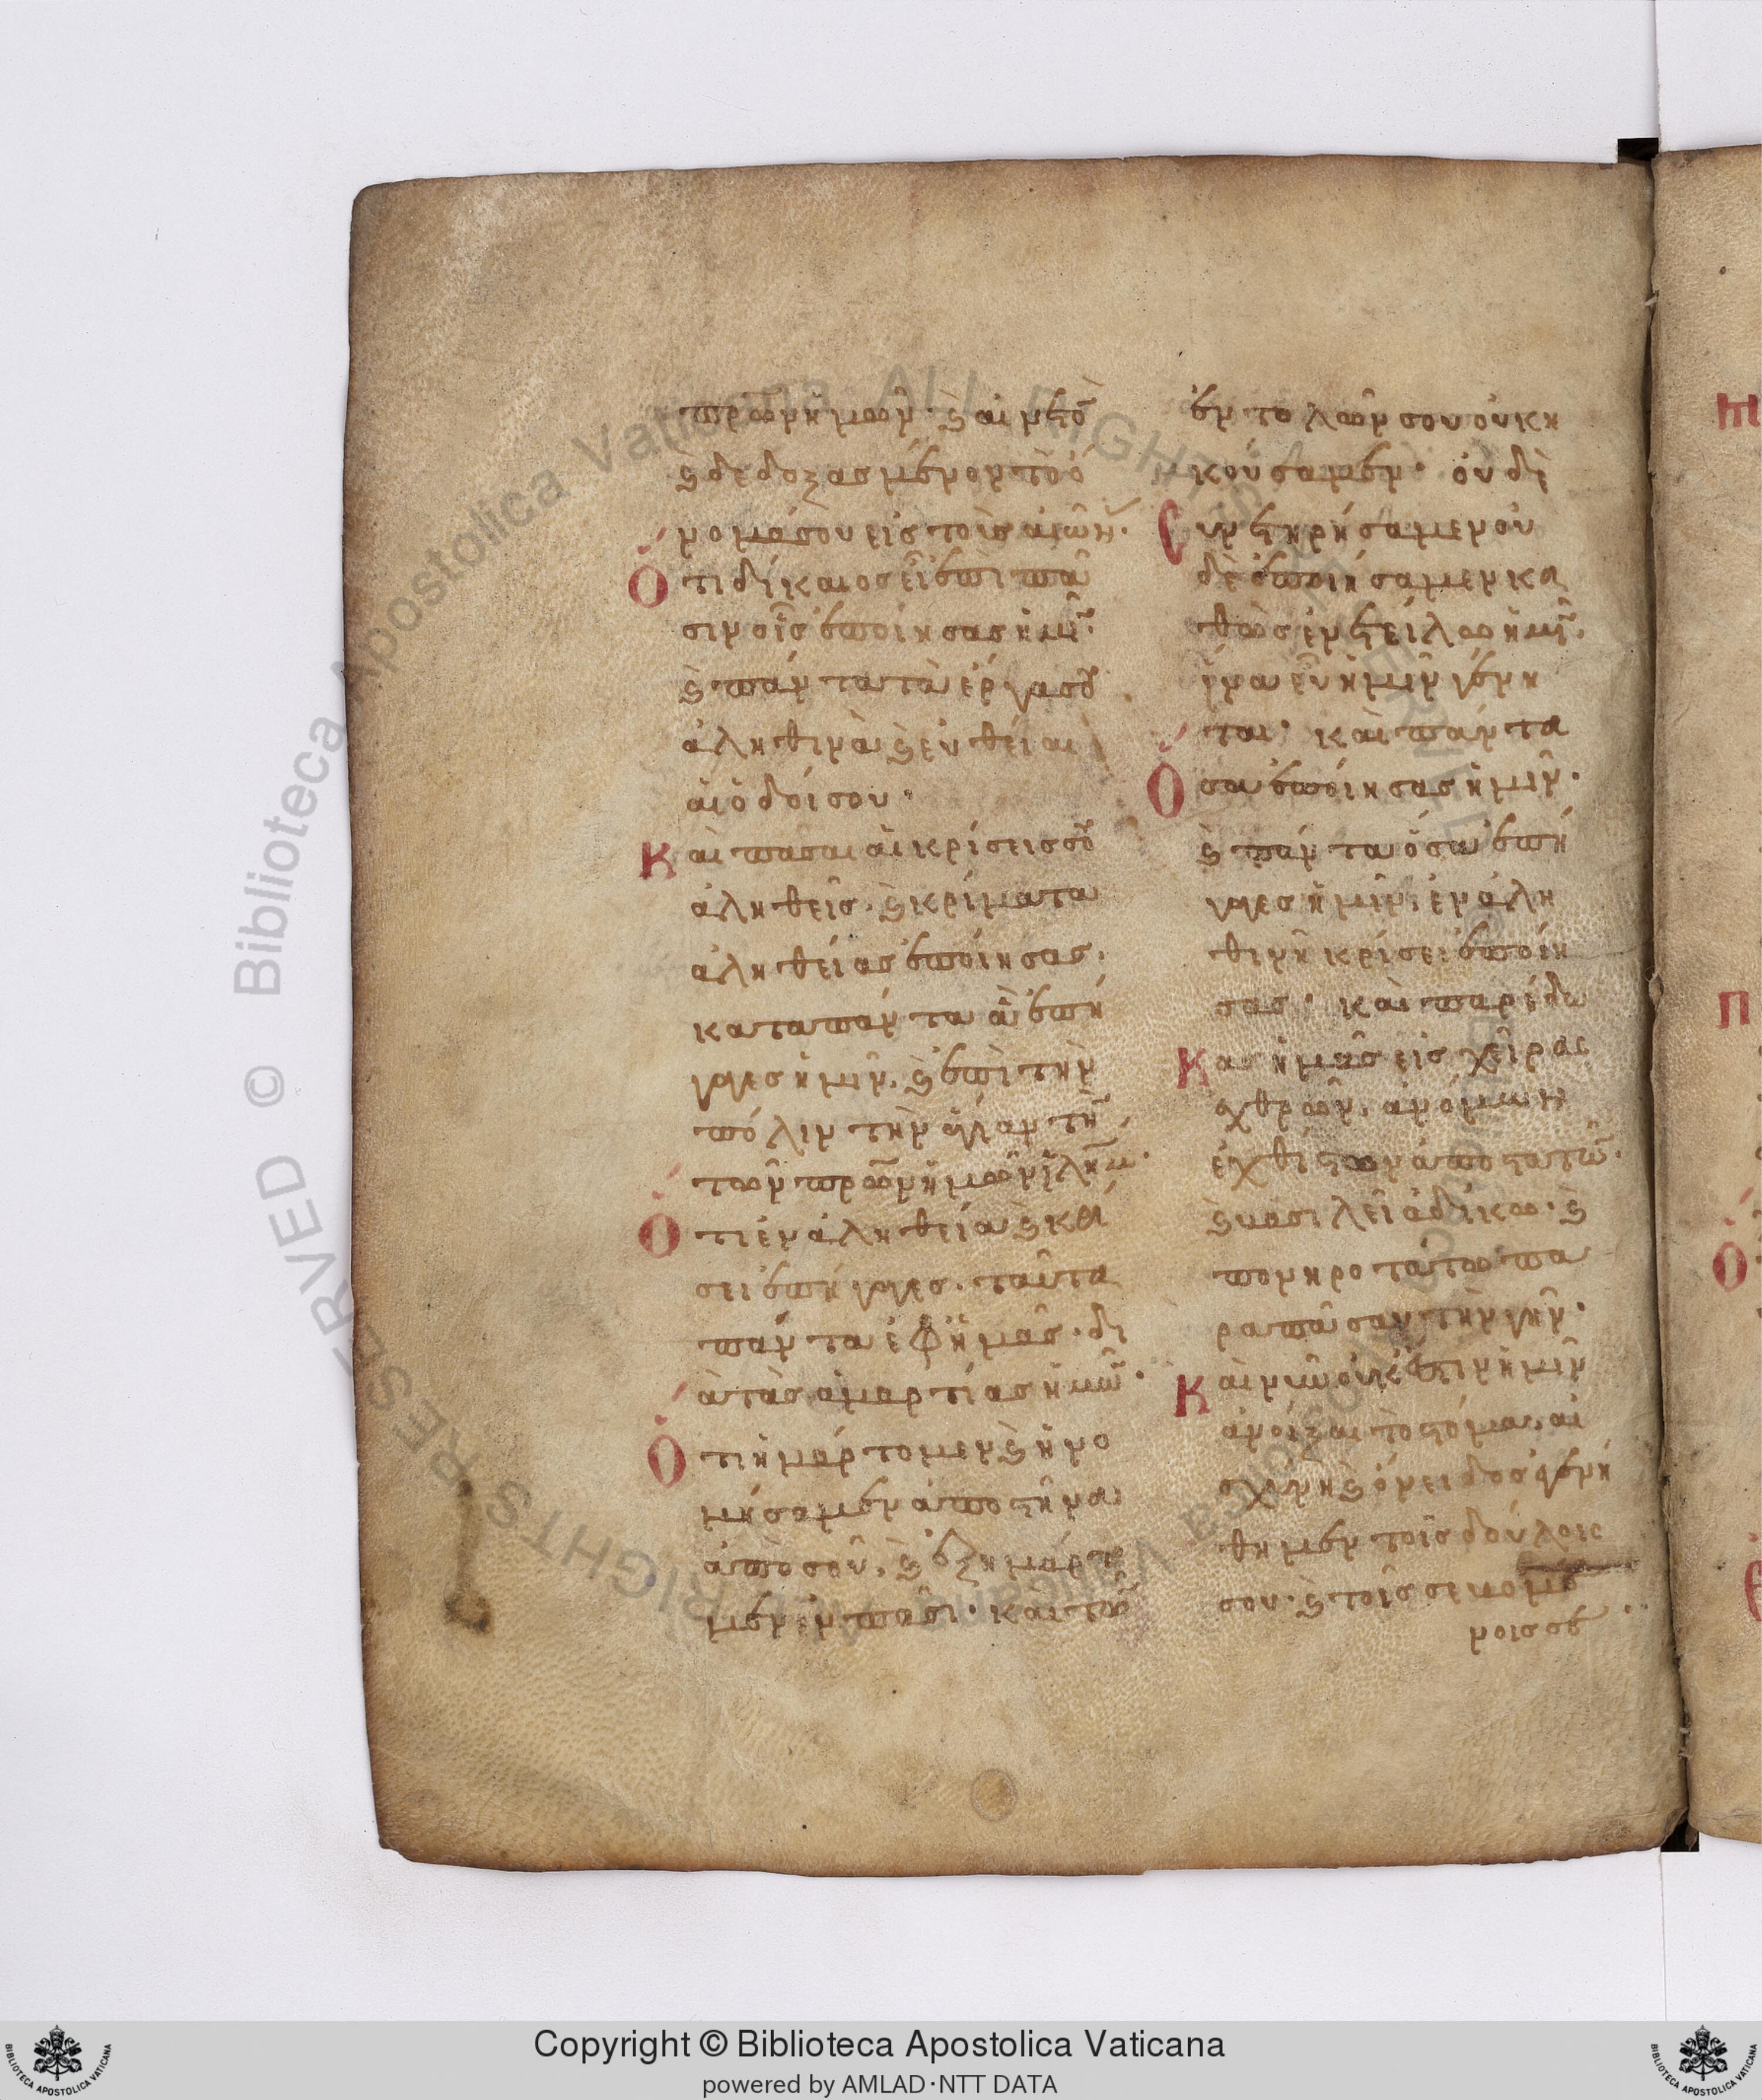 πρων ἡμων· ϗ αἰνετο
ϗ δεδοξασμένον τὸ ὄ
νομά σου εἰς τοὺς αἰων.
Ὅτι δίκαιος εἶ ἐπὶ πᾶ
σιν οἷς ἐποίησας ἡμι.
ϗ πάντα τὰ ἔργα σου
ἀληθινὰ ϗ εὐθεῖαι
αἱ ὁδοί σου·
Και πᾶσαι αἱ κρίσεις σου
ἀληθεῖς. ϗ κρίματα
ἀληθείας ἐποίησας.
κατα πάντα ἃ ἐπή
γαγες ἡμῖν. ϗ ἐπὶ τὴν
πόλιν τὴν ἁγίαν τὴ
τῶν πρων ἡμῶν ϊλημ·
Ὅτι ἐν ἀληθεία ϗ κρί
σει ἐπήγαγες. ταῦτα
πάντα ἐφ ἡμᾶς· δι
ὰ τὰς ἁμαρτίας ἡμω·
Ὅτι ἡμάρτομεν ϗ ἠνο
μήσαμεν ἀποστῆναι
ἀπὸ σοῦ, ϗ ἐξημάρτο
μεν ἐν πᾶσι· καὶ τῶ
ἐντολῶν σου οὐκ ἠ
κούσαμεν· οὐδὲ
Συνετηρήσαμεν οὐ
δὲ ἐποιήσαμεν κα
θὼς ἐνετείλω ἡμι.
ἵνα εὖ ἡμῖν γένη
ται· καὶ πάντα
Ὅσα ἐποίησας ἡμῖν·
ϗ πάντα ὅσα ἐπή
γαγες ἡμῖν, ἐν ἀλη
θινῆ κρίσει ἐποίη
σας· καὶ παρέδω
Κας ἡμᾶς εἰς χεῖρας
ἐχθρῶν, ἀνόμων
ἐχθίστων ἀποστατῶ.
ϗ βασιλεῖ ἀδίκω· ϗ
πονηροτάτω πα
ρα πᾶσαν τὴν γῆν·
Καὶ νῦν οὐκ ἔστιν ἡμῖν
ἀνοῖξαι τὸ στόμα. αἰ
σχύνη ϗ ὄνειδος ἐγενή
θημεν τοῖς δούλοις
σου· ϗ τοῖς σεβομέ
νοις σε
Copyright © Biblioteca Apostolica Vaticana
powered by AMLAD·NTT DATA